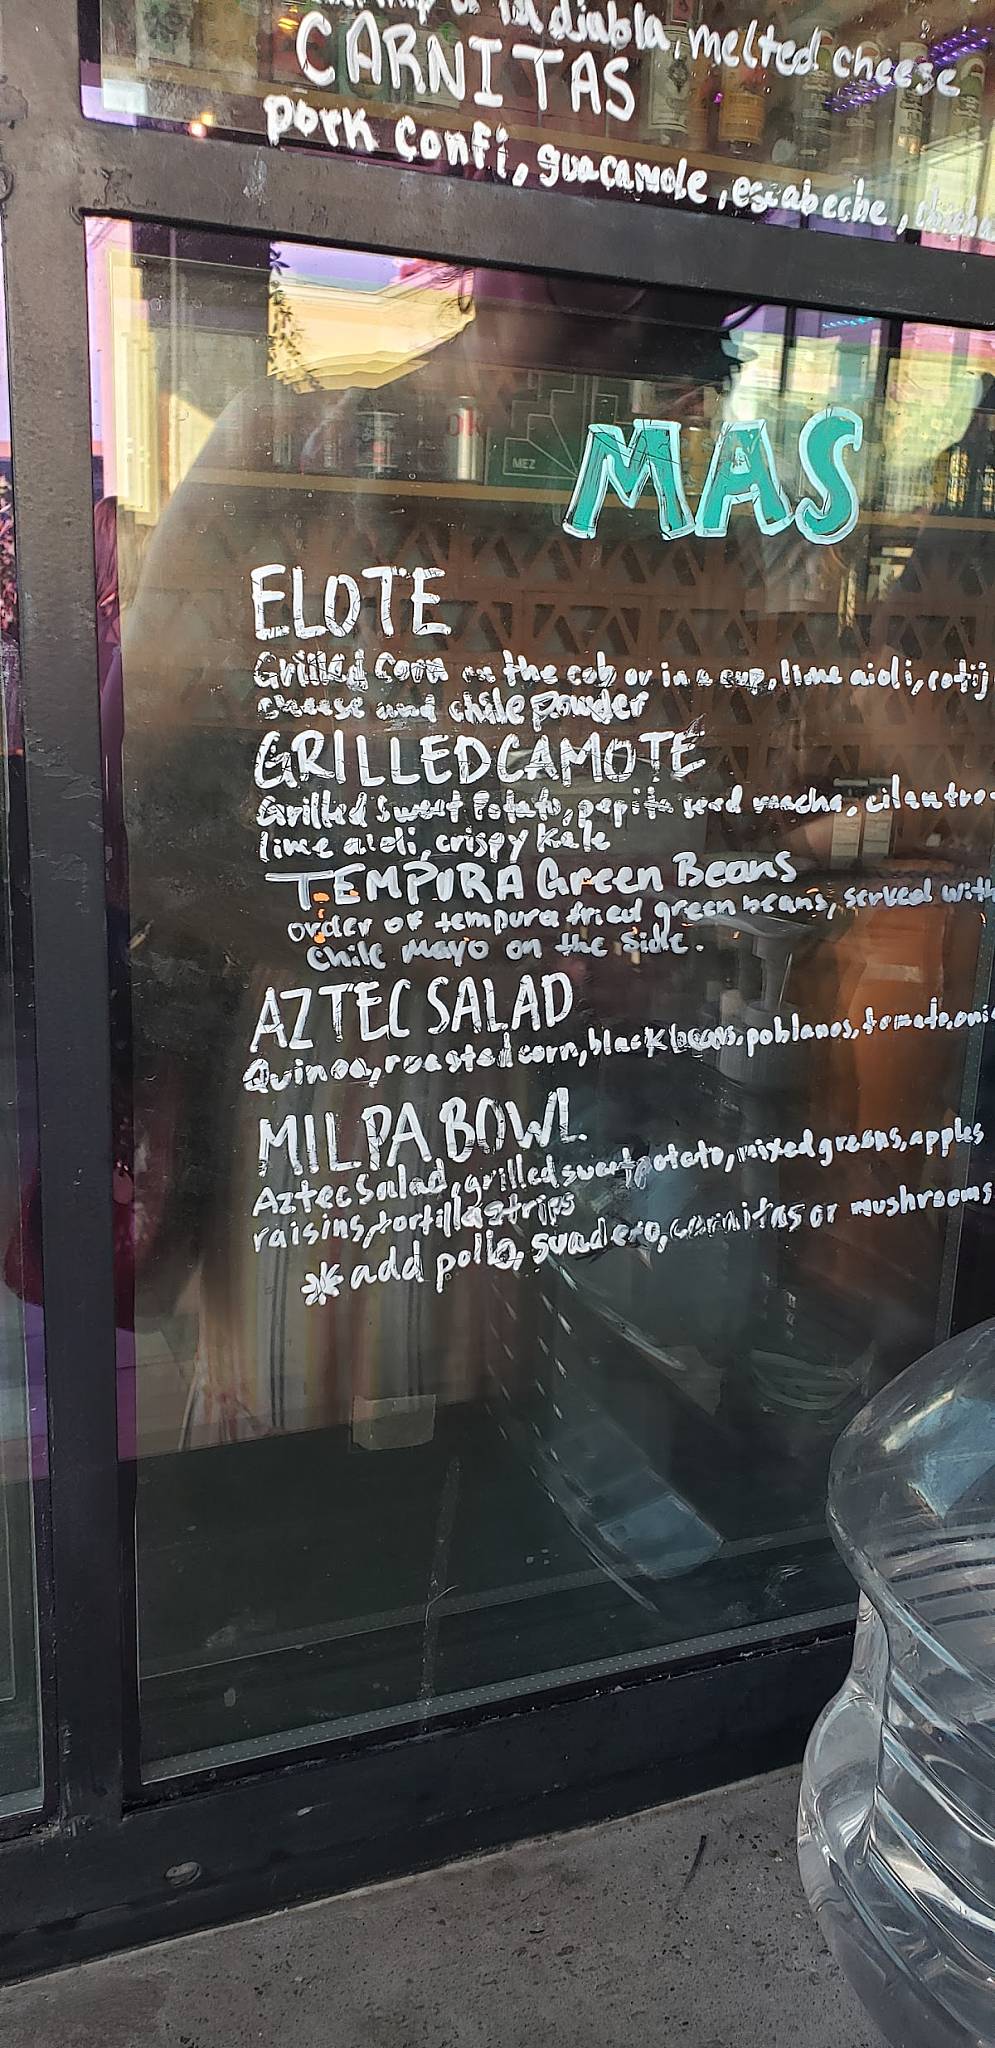 la diabla, melted cheese
CARNITAS
pork confi, guacamole, escabeche,
MEZ
MAS
ELOTE
Grilled corn on the cob or in a cup, lime aioli, cotij
cheese and chile powder
GRILLED CAMOTE
Grilled sweet potato, pepita seed macha, cilantro-
lime aioli, crispy kale
TEMPURA Green Beans
order of tempura fried green beans, served with
chile mayo on the side.
AZTEC SALAD
Quinoa, roasted corn, black beans, poblanos, tomato, oni
MILPA BOWL
Aztec Salad, grilled sweet potato, mixed greens, apples
raisins, tortilla strips
* add pollo, suadero, carnitas or mushrooms